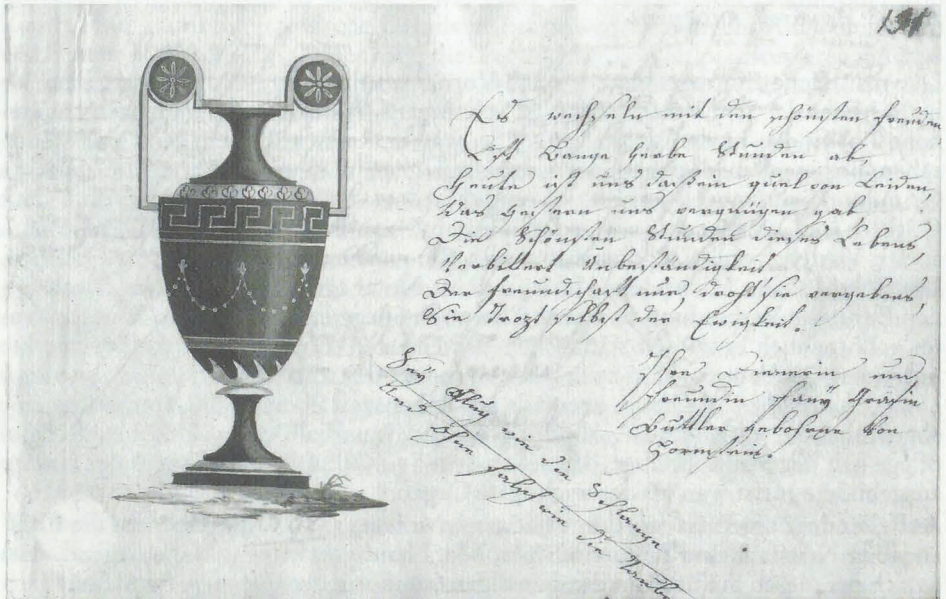 191
Es wechseln mit den schönsten Freuden
Oft Bange herbe Stunden ab,
Heute ist uns daßein quel von Leiden
Was Gestern uns vergnügen gab
Die Schönsten Stunden dieses Lebens,
Verbittert Unbeständigkeit
Der Freundschaft nur, droht sie vergebens,
Sie Trozt selbst der Ewigkeit.
Ihre Dienerin und
Freundin Fany Gräfin
Buttler gebohrne von
Hornstein.
Seÿ Klug wie die Schlange
Und ohne falsch wie die Taube